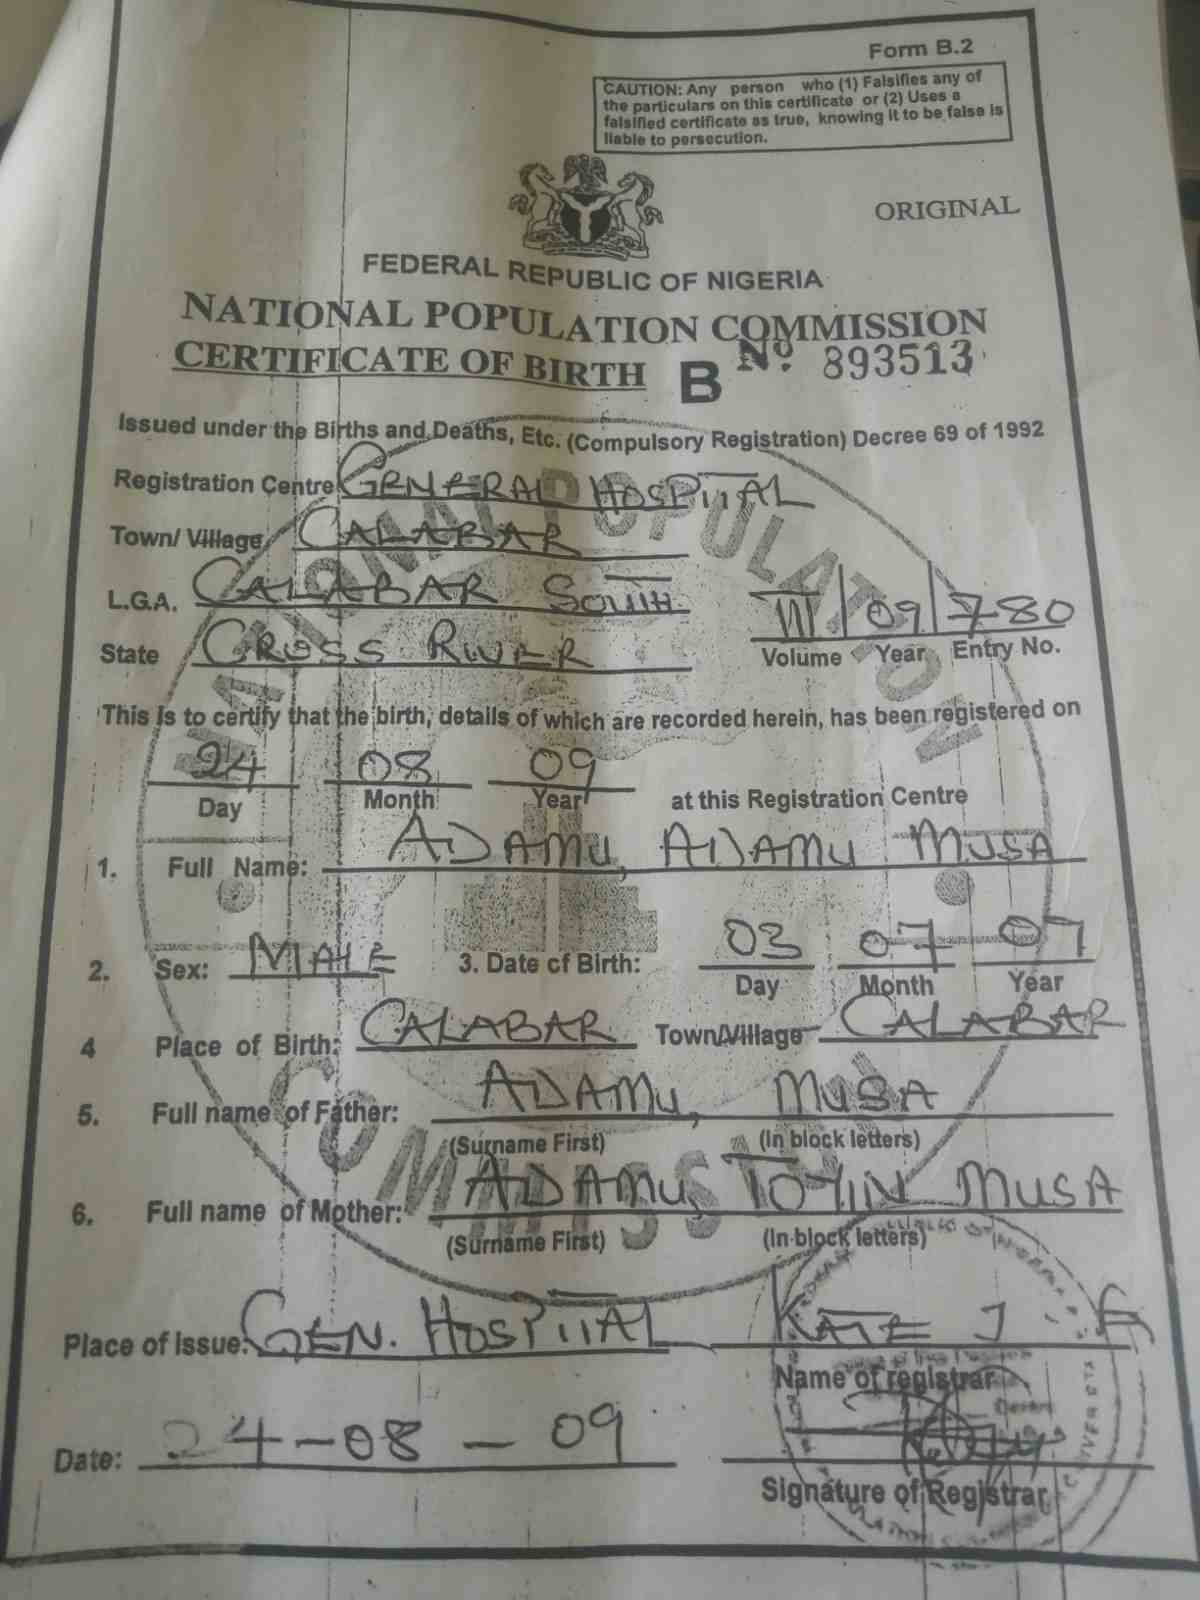 Form B.2
CAUTION: Any person who (1) Falsifies any of
the particulars on this certificate or (2) Uses a
falsified certificate as true, knowing it to be false is
liable to persecution.
ORIGINAL
FEDERAL REPUBLIC OF NIGERIA
NATIONAL POPULATION COMMISSION
CERTIFICATE OF BIRTH B No. 893513
Issued under the Births and Deaths, Etc. (Compulsory Registration) Decree 69 of 1992
Registration Centre GENERAL HOSPITAL
Town/ Village CALABAR
L.G.A. CALABAR SOUTH
III/ 09/ 780
State CROSS RIVER
Volume Year Entry No.
This is to certify that the birth, details of which are recorded herein, has been registered on
24 08 09
Day Month Year at this Registration Centre
1. Full Name: ADAMU, ADAMU MUSA
2. Sex: MALE 3. Date of Birth: 03 07 07
Day Month Year
4 Place of Birth: CALABAR Town/Village CALABAR
5. Full name of Father: ADAMU, MUSA
(Surname First) (In block letters)
6. Full name of Mother: ADAMU, TOYIN MUSA
(Surname First) (In block letters)
Place of Issue: GEN. HOSPITAL KATE J
Name of registrar
Date: 24-08-09
Signature of Registrar
NATIONAL POPULATION COMMISSION